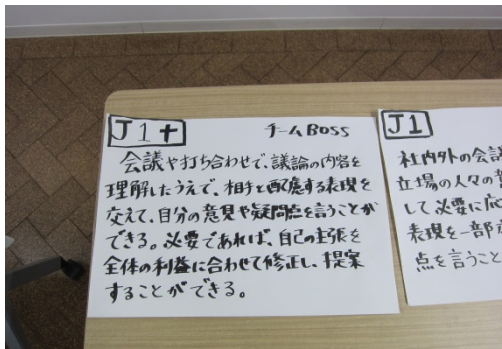 J1+ チームBOSS
会議や打ち合わせで、議論の内容を
理解したうえで、相手と配慮する表現を
交えて、自分の意見や疑問点を言うことが
できる。必要であれば、自己の主張を
全体の利益に合わせて修正し、提案
することができる。
J1
社内外の会議
立場の人々の意
して必要に応
表現を一部
点を言うこと